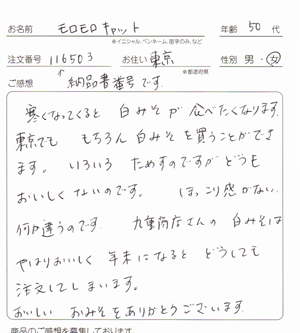 お名前 モロモロキャット 年齢 50 代
※イニシャル、ペンネーム、苗字のみ、など
注文番号 116503 お住い 東京 性別 男・女
※都道府県
ご感想 ↑納品書番号です。
寒くなってくると 白みそが 食べたくなります。
東京でも もちろん 白みそを買うことができ
ます。 いろいろ ためすのですが どうも
おいしくないのです。 ほっこり感がない。
何か違うのです。 九重商店さんの 白みそは
やはりおいしく 年末になると どうしても
注文してしまいます。
おいしい おみそをありがとうございます。
商品のご感想を募集しております